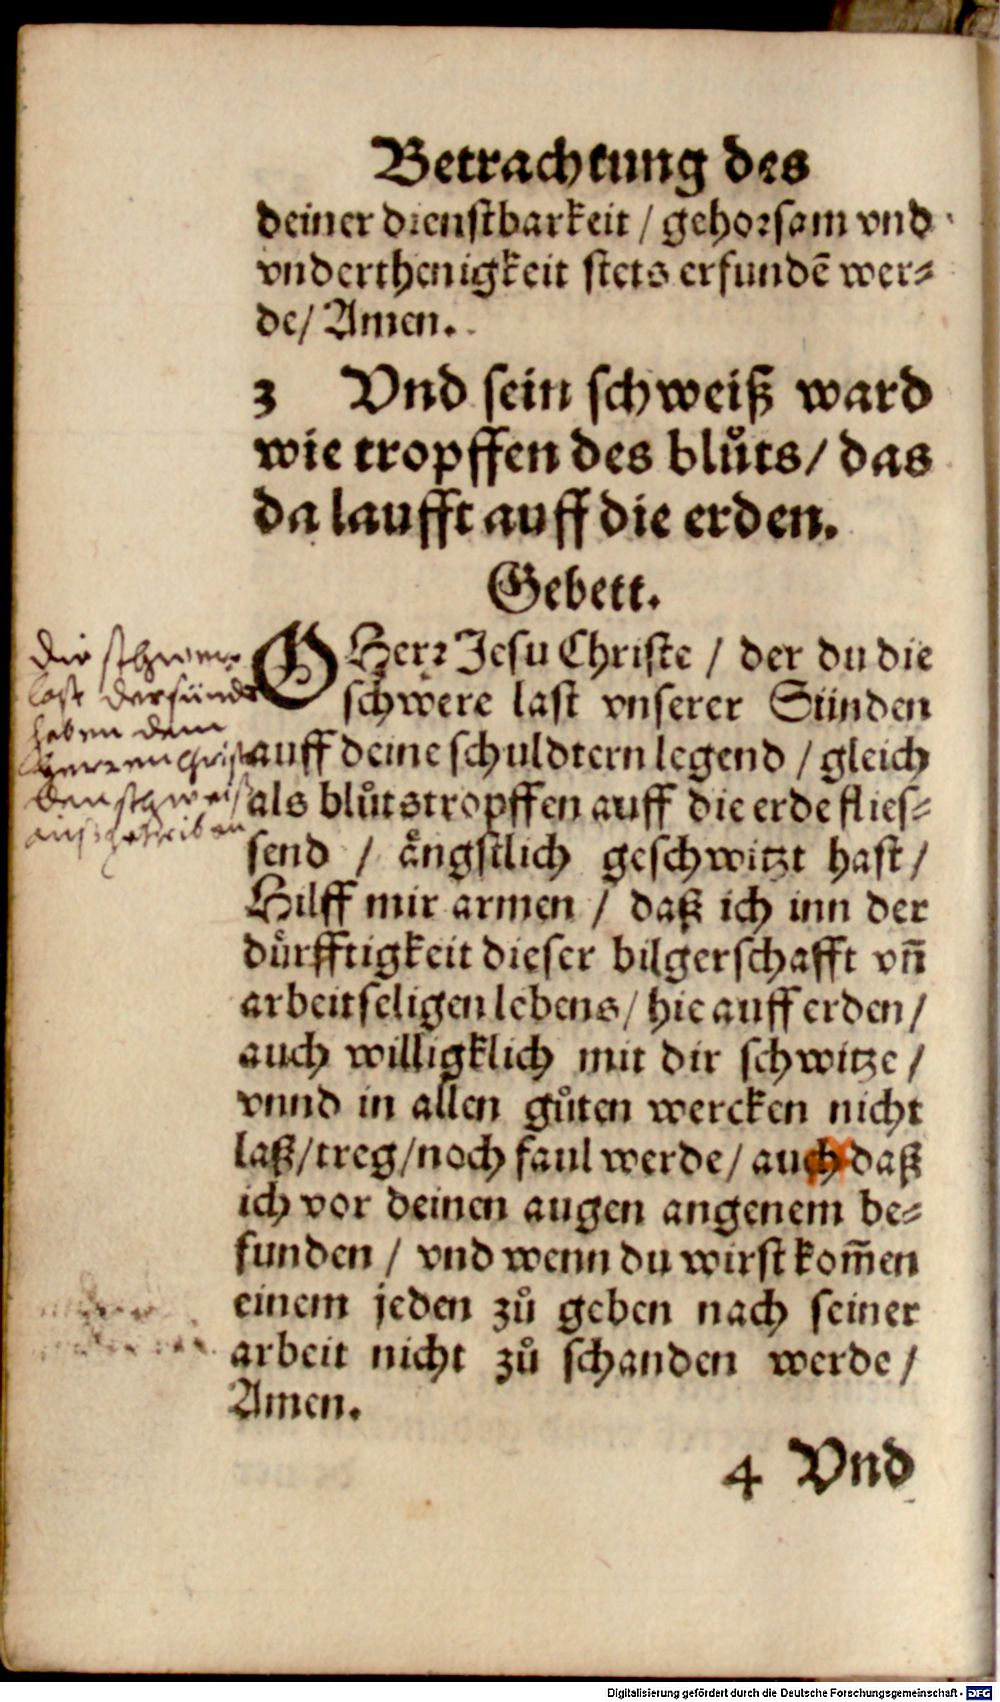 Betrachtung des
deiner dienstbarkeit / gehorsam vnd
vnderthenigkeit stets erfundē wer⸗
de/ Amen.
3 Vnd sein schweiß ward
wie tropffen des blůts/ das
da laufft auff die erden.
Gebett.
O Herr Jesu Christe / der du die
schwere last vnserer Sünden
auff deine schuldtern legend / gleich
als blůtstropffen auff die erde flies⸗
send / ångstlich geschwitzt hast /
Hilff mir armen / daß ich inn der
dürfftigkeit dieser bilgerschafft vn̄
arbeitseligen lebens/ hie auff erden /
auch willigklich mit dir schwitze /
vnnd in allen gůten wercken nicht
laß/treg/noch faul werde/ auch daß
ich vor deinen augen angenem be⸗
funden / vnd wenn du wirst kom̄en
einem jeden zů geben nach seiner
arbeit nicht zů schanden werde /
Amen.
4 Vnd
Die schwere
last der sünde
haben dem
Herren Christ
den schweiß
außgetriben
Digitalisierung gefördert durch die Deutsche Forschungsgemeinschaft - DFG